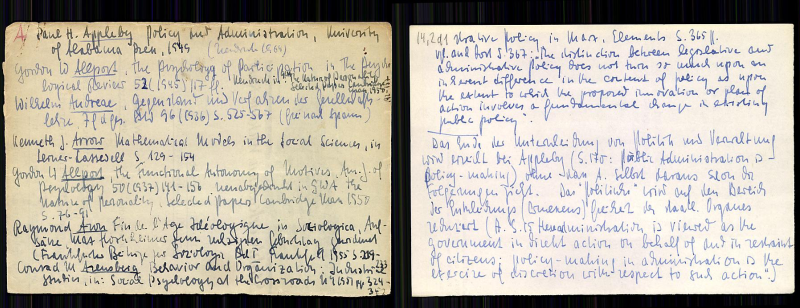 A,
Paul H. Appleby Policy and Administration, University
of Alabama Press, 1949
Gordon W. Allport, the Psychology of Participation in the Psycho-
logical Review 52 (1945) 117 ff.
Selected papers Cambridge
Wilhelm Andreae, Gegenstand und Verfahren der Gesellschafts-
lehre, 96 (1936) S. 525-567
Kenneth J. Arrow Mathematical Models in the Social Sciences, in
Lerner-Lasswell S. 129 - 154
Gordon W. Allport, the Functional Autonomy of Motives, Am. J. of
Psychology 50 (1937) 141-156 in GWA the
nature of personality, selected papers Cambridge Mass 1950
S. 76-91
Raymond Aron Fin de l'Age Idéologique in Sociologica, Auf-
sätze, Max Horkheimer zum
(Frankfurter Beiträge zur Soziologie Bd 1 Frankfurt 1955 S. 219-
Conrad M. Arensberg Behavior and Organization: Industrial
Studies, in: Social Psychology at the Crossroads pp. 324-
352
14,2d1 strative policy in Marx, Elements S. 365 ff.
vgl. auch dort S 367: "The distinction between legislative and
administrative policy does not turn so much upon an
inherent difference in the content of policy as upon
the extent to which the proposed innovation or plan of
action involves a fundamental change in existing
public policy".
Das Ende der Unterscheidung von Politik und Verwaltung
wird erreicht bei Appleby (S. 170: Public Administration is
Policy-making) ohne dass A. selbst daraus schon die
Folgerungen zieht. Das "Politische" wird auf den Bereich
der Entscheidung der staatl. Organe
reduziert (A. S. administration is viewed as the
government in direct action on behalf of and in restraint
of citizens; policy-making in administration is the
exercise of discretion with respect to such action".)